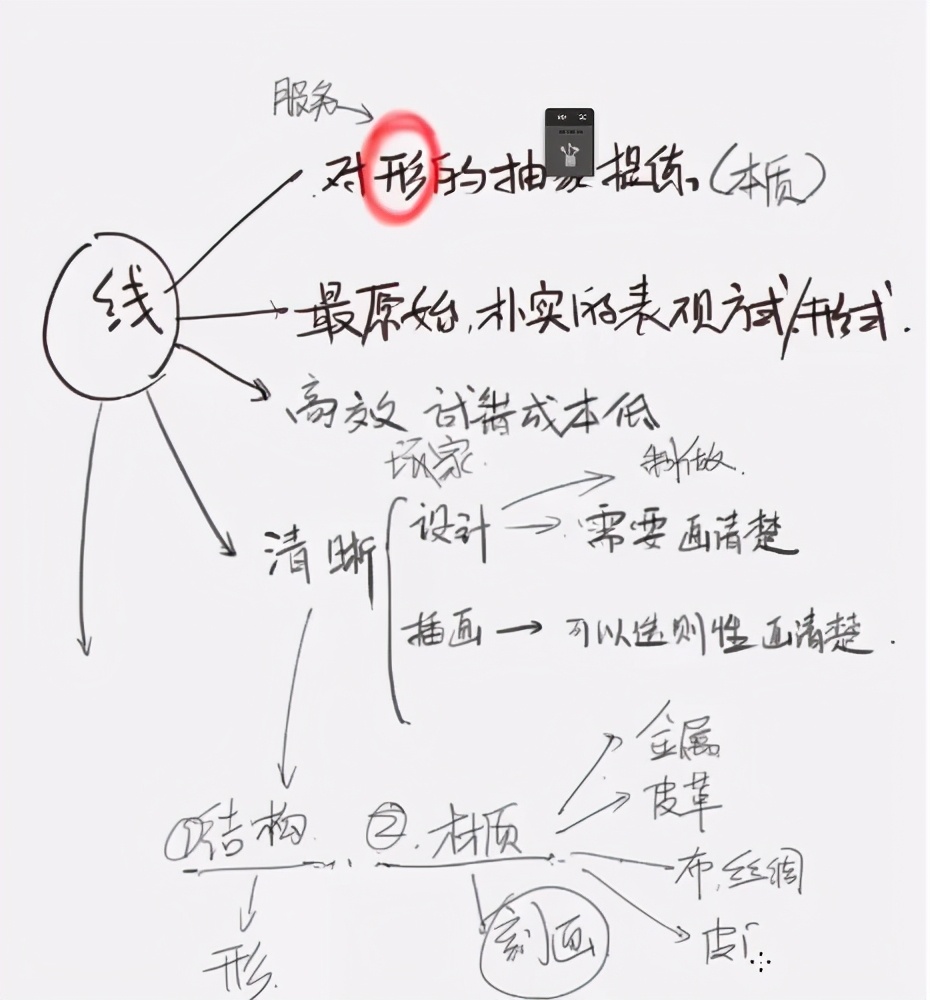 服务
对形的抽 提练。(本质)
线
最原始,朴实的表现方式/形式.
高效 试错成本低
玩家.
制做.
设计
需要画清楚
清晰
插画
可以选则性画清楚.
金属
皮革
①结构
②.材质
布.丝绸
刻画
皮
形.